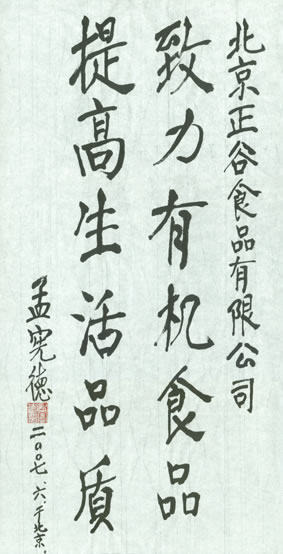 北京正谷食品有限公司
致力有机食品
提高生活品质
孟宪德
二〇〇七、六、于北京、